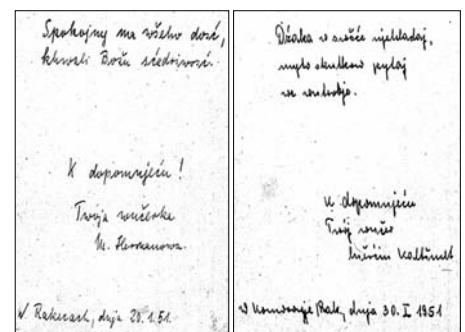 Spokojny ma wšeho dosć,
khwali Božu sćedriwosć.
K dopomnjeću!
Twoja wučerka
M. Hermanowa.
W Rakecach, dnja 20.1.51.
Džaka w swěće njehladaj,
myto skutkow pytaj
we wutrobje.
K dopomnjeću
Twój wučer
w Rak., dnja 30. I 1951